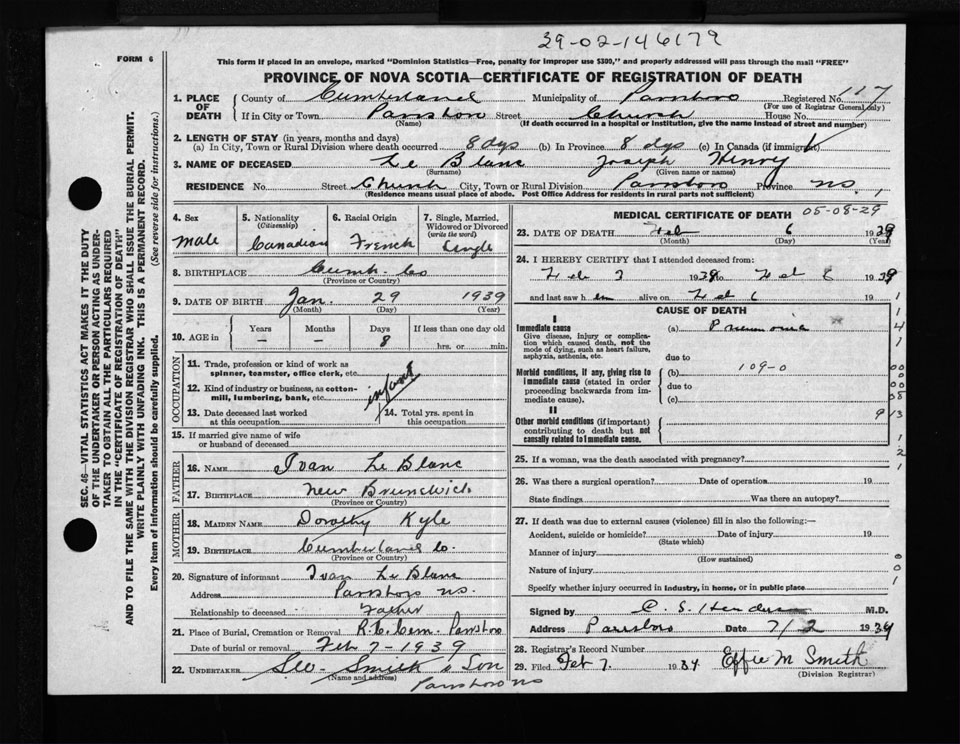 29-02-146179
FORM 6
This form if placed in an envelope, marked "Dominion Statistics—Free, penalty for improper use $300," and properly addressed will pass through the mail "FREE"
PROVINCE OF NOVA SCOTIA—CERTIFICATE OF REGISTRATION OF DEATH
1. PLACE OF DEATH County of Cumberland Municipality of Parrsboro Registered No. 117
(For use of Registrar General only)
If in City or Town Parrsboro Street Church House No.
(Name) (If death occurred in a hospital or institution, give the name instead of street and number)
2. LENGTH OF STAY (in years, months and days)
(a) In City, Town or Rural Division where death occurred 8 dys (b) In Province 8 dys (c) In Canada (if immigrant)
3. NAME OF DECEASED Le Blanc Joseph Henry
(Surname) (Given name or names)
RESIDENCE No. Street Church City, Town or Rural Division Parrsboro Province N.S.
(Residence means usual place of abode. Post Office Address for residents in rural parts not sufficient)
4. Sex male
5. Nationality (Citizenship) Canadian
6. Racial Origin French
7. Single, Married, Widowed or Divorced (write the word) Single
8. BIRTHPLACE Cumb. Co
(Province or Country)
9. DATE OF BIRTH Jan. 29 1939
(Month) (Day) (Year)
10. AGE in Years – Months – Days 8 If less than one day old
hrs. or min.
OCCUPATION
11. Trade, profession or kind of work as spinner, teamster, office clerk, etc.
12. Kind of industry or business, as cotton-mill, lumbering, bank, etc.
infant
13. Date deceased last worked at this occupation
14. Total yrs. spent in this occupation
15. If married give name of wife or husband of deceased
FATHER
16. NAME Ivan Le Blanc
17. BIRTHPLACE New Brunswick
(Province or Country)
MOTHER
18. MAIDEN NAME Dorothy Kyle
19. BIRTHPLACE Cumberland Co.
(Province or Country)
20. Signature of informant Ivan Le Blanc
Address Parrsboro N.S.
Relationship to deceased Father
21. Place of Burial, Cremation or Removal R.C. Cem. Parrsboro
Date of burial or removal Feb 7 - 1939
22. UNDERTAKER Geo. Smith & Son
(Name and address)
Parrsboro NS
MEDICAL CERTIFICATE OF DEATH 05-08-29
23. DATE OF DEATH Feb 6 1939
(Month) (Day) (Year)
24. I HEREBY CERTIFY that I attended deceased from:
Feb 3 1939 to Feb 6 1939
and last saw him alive on Feb 6 19
CAUSE OF DEATH
I
Immediate cause (a) Pneumonia
Give disease, injury or complication which caused death, not the mode of dying, such as heart failure, asphyxia, asthenia, etc.
due to
Morbid conditions, if any, giving rise to immediate cause (stated in order proceeding backwards from immediate cause).
(b) 109-0
due to
(c)
II
Other morbid conditions (if important) contributing to death but not causally related to immediate cause.
9
25. If a woman, was the death associated with pregnancy?
26. Was there a surgical operation? Date of operation 19
State findings Was there an autopsy?
27. If death was due to external causes (violence) fill in also the following:—
Accident, suicide or homicide? Date of injury 19
(State which)
Manner of injury
(How sustained)
Nature of injury
Specify whether injury occurred in industry, in home, or in public place
Signed by M.D.
Address Parrsboro Date 7/2 1939
28. Registrar's Record Number
29. Filed Feb 7. 1939 Effie M Smith
(Division Registrar)
SEC. 46—VITAL STATISTICS ACT MAKES IT THE DUTY
OF THE UNDERTAKER OR PERSON ACTING AS UNDER-
TAKER TO OBTAIN ALL THE PARTICULARS REQUIRED
IN THE "CERTIFICATE OF REGISTRATION OF DEATH"
AND TO FILE THE SAME WITH THE DIVISION REGISTRAR WHO SHALL ISSUE THE BURIAL PERMIT.
WRITE PLAINLY WITH UNFADING INK. THIS IS A PERMANENT RECORD.
Every item of information should be carefully supplied. (See reverse side for instructions.)